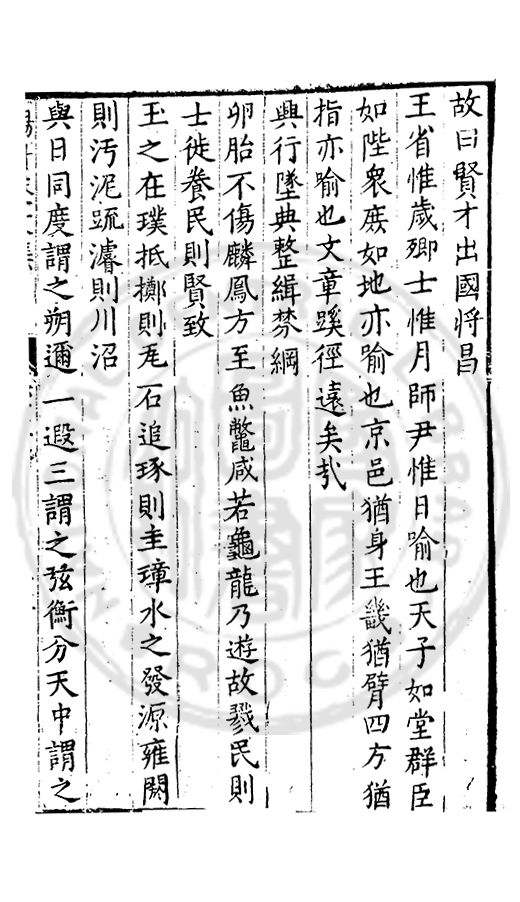 故曰賢才出國將昌
王省惟歲卿士惟月師尹惟日喻也天子如堂群臣
如陛衆庶如地亦喻也京邑猶身王畿猶臂四方猶
指亦喻也文章蹊徑遠矣哉
興行墜典整緝棼綱
卵胎不傷麟鳳方至魚鼈咸若龜龍乃遊故戮民則
士徙養民則賢致
玉之在璞抵擲則瓦石追琢則圭璋水之發源雍閼
則汚泥疏濬則川沼
與日同度謂之朔邇一遐三謂之弦衡分天中謂之